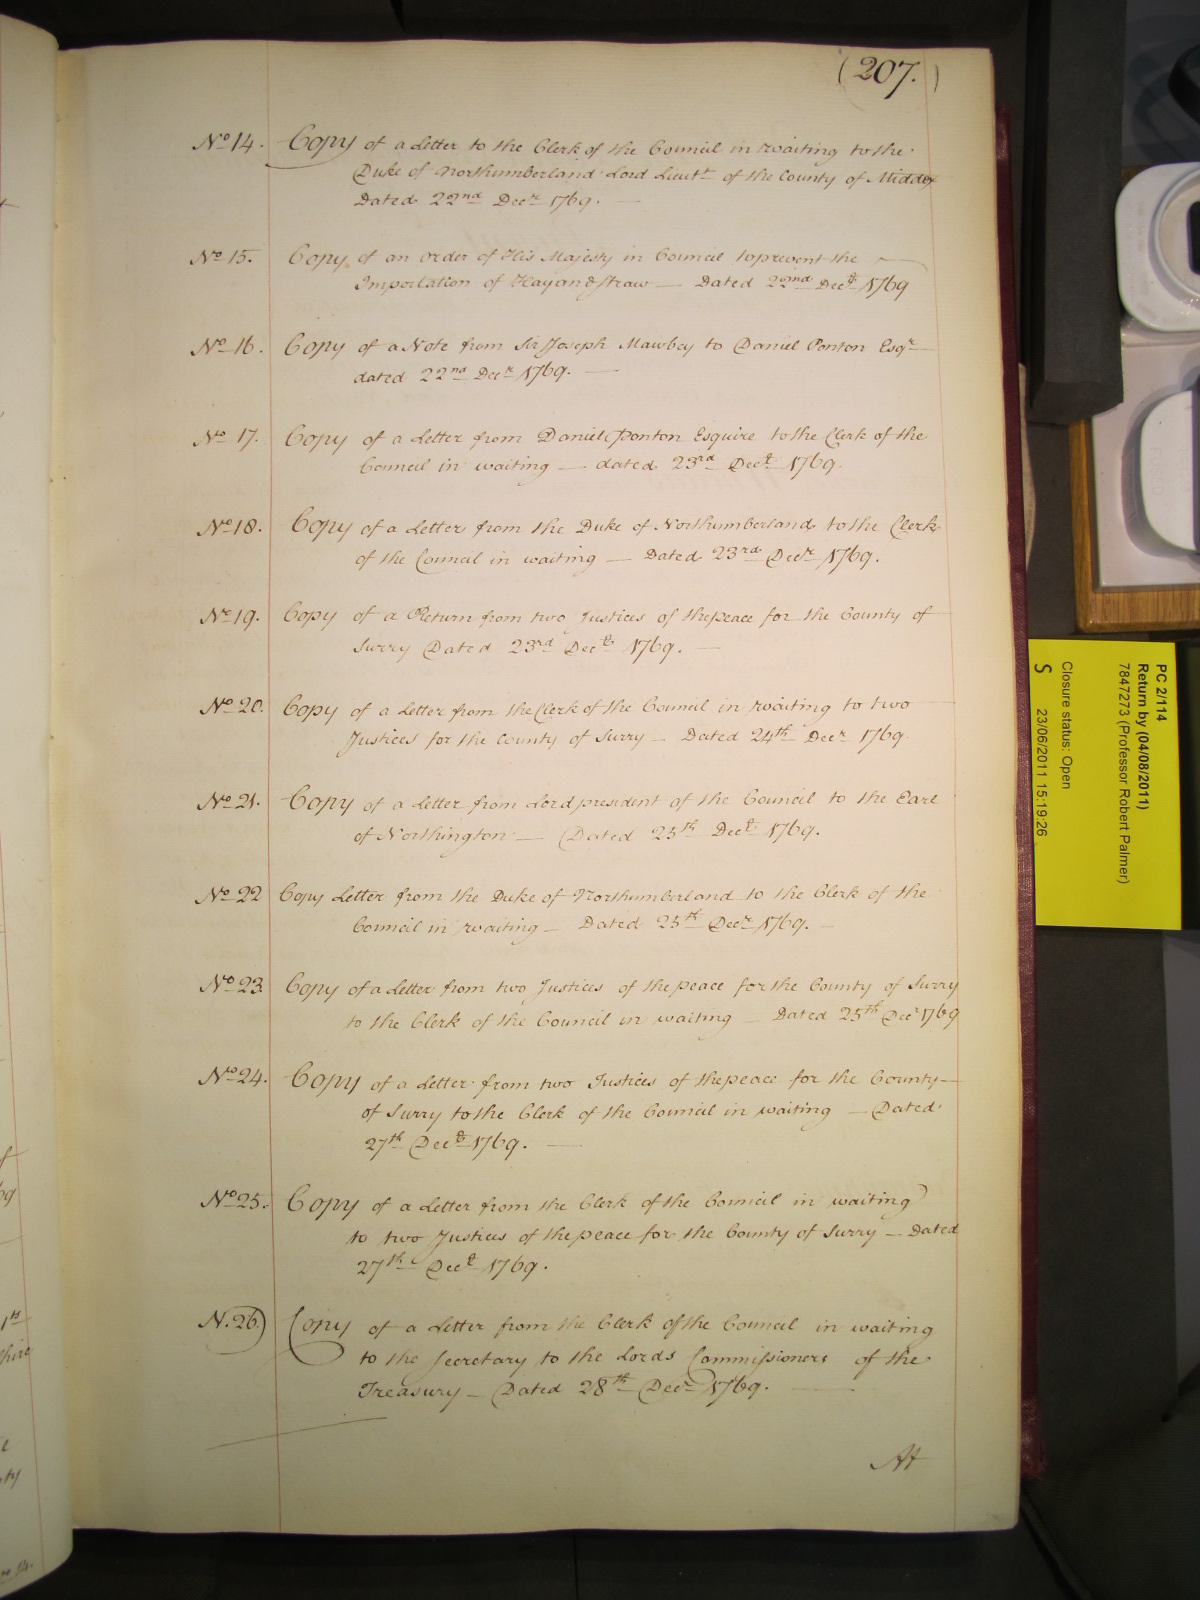 (207.)
No 14. Copy of a Letter to the Clerk of the Council in waiting to the
Duke of Northumberland Lord Lieutt of the County of Middex
Dated 22nd Decr 1769.
No 15. Copy of an Order of His Majesty in Council to prevent the
Importation of Hay and Straw — Dated 22nd Decr 1769
No 16. Copy of a Note from Sir Joseph Mawbey to Daniel Ponton Esqr
dated 22nd Decr 1769. —
No 17. Copy of a Letter from Daniel Ponton Esquire to the Clerk of the
Council in waiting — dated 23rd Decr 1769.
No 18. Copy of a Letter from the Duke of Northumberland to the Clerk
of the Council in waiting — Dated 23rd Decr 1769.
No 19. Copy of a Return from two Justices of the peace for the County of
Surry Dated 23rd Decr 1769. —
No 20. Copy of a Letter from the Clerk of the Council in waiting to two
Justices for the County of Surry — Dated 24th Decr 1769.
No 21. Copy of a Letter from Lord president of the Council to the Earl
of Northington — Dated 25th Decr 1769.
No 22 Copy Letter from the Duke of Northumberland to the Clerk of the
Council in waiting — Dated 25th Decr 1769. —
No 23. Copy of a Letter from two Justices of the peace for the County of Surry
to the Clerk of the Council in waiting — Dated 25th Decr 1769
No 24. Copy of a Letter from two Justices of the peace for the County
of Surry to the Clerk of the Council in waiting — Dated
27th Decr 1769. —
No 25. Copy of a Letter from the Clerk of the Council in waiting
to two Justices of the peace for the County of Surry — Dated
27th Decr 1769.
N. 26. Copy of a Letter from the Clerk of the Council in waiting
to the Secretary to the Lords Commissioners of the
Treasury — Dated 28th Decr 1769.
At
PC 2/114
Return by (04/08/2011)
7847273 (Professor Robert Palmer)
Closure status: Open
S 23/06/2011 15:19:26